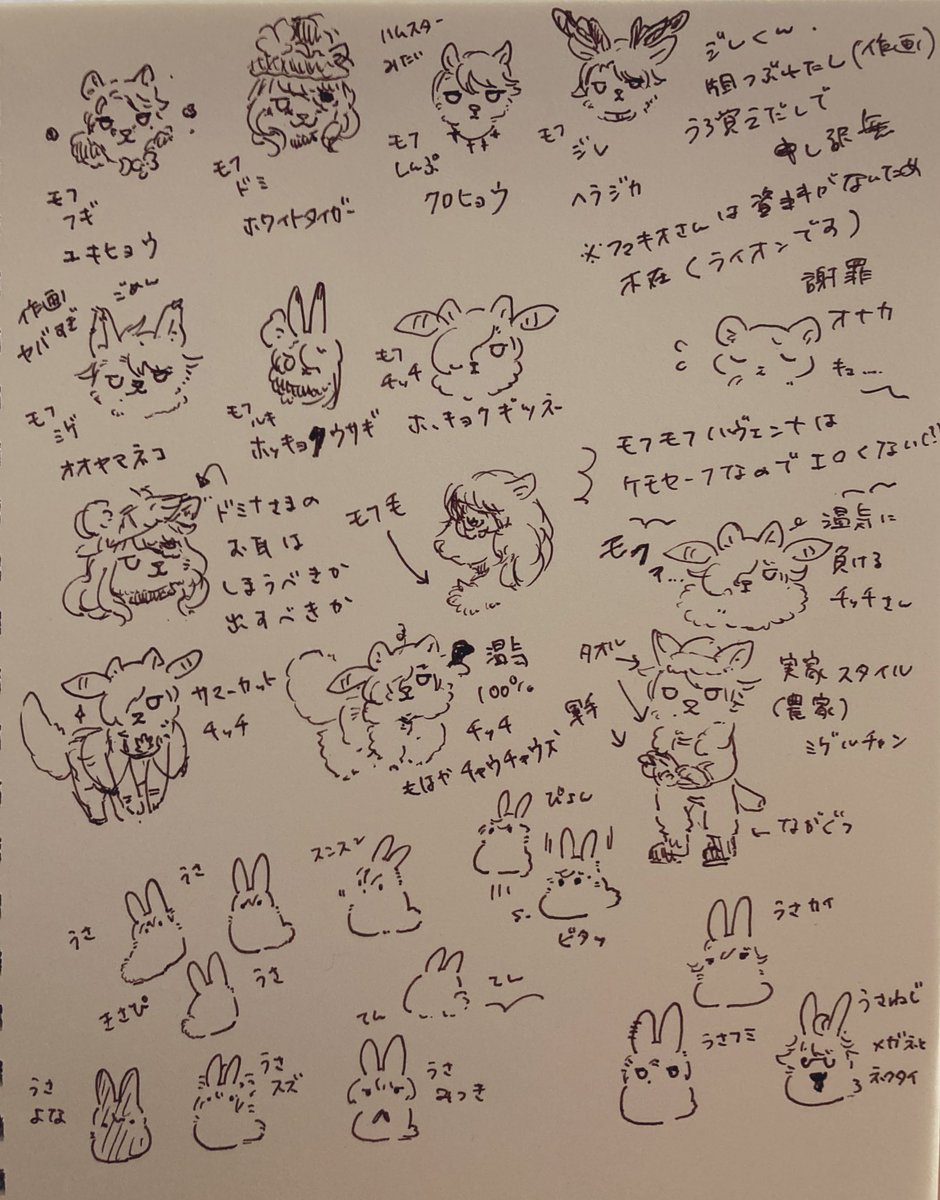 モフ
フギ
ユキヒョウ
モフ
ドミ
ホワイトタイガー
ハムスター
みだ
モフ
しんぷ
クロヒョウ
モフ
ジレ
ヘラジカ
ジレくん.
顔つぶれたし(作画)
うろ覚えだしで
申し訳無
※フマキオさんは資料がないため
不在(ライオンです)
作画
ヤバすぎ
ごめん
モフ
ミゲ
オオヤマネコ
モフ
ルキ
ホッキョクウサギ
モフ
チッチ
ホッキョクギツネ
謝罪
オナカ
キュ…
ドミナさまの
お耳は
しまうべきか
出すべきか
モフ毛
モフモフハヴェンナは
ケモセーフなのでエロくない(!)
モファ…
湿気に
負ける
チッチさん
サマーカット
チッチ
湿気
100%
チッチ
もはやチャウチャウだ
タオル
軍手
実家スタイル
(農家)
ミゲルチャン
ながぐつ
うさ
うさ
スンスン
ぴょん
ピタッ
きさぴ
うさ
てん
てん
うさカイ
うさ
よな
うさ
スズ
うさ
みつき
うさフミ
うさねじ
メガネと
ネクタイ